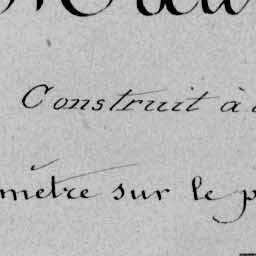 Construit à
mètre sur le